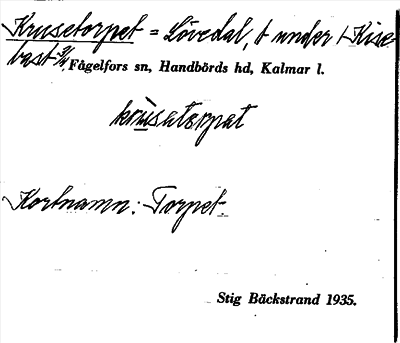 Krusetorpet = Lövedal, t under Kise-
bast 3/4, Fågelfors sn, Handbörds hd, Kalmar l.
krùsatorpat
Kortnamn: Torpet.
Stig Bäckstrand 1935.